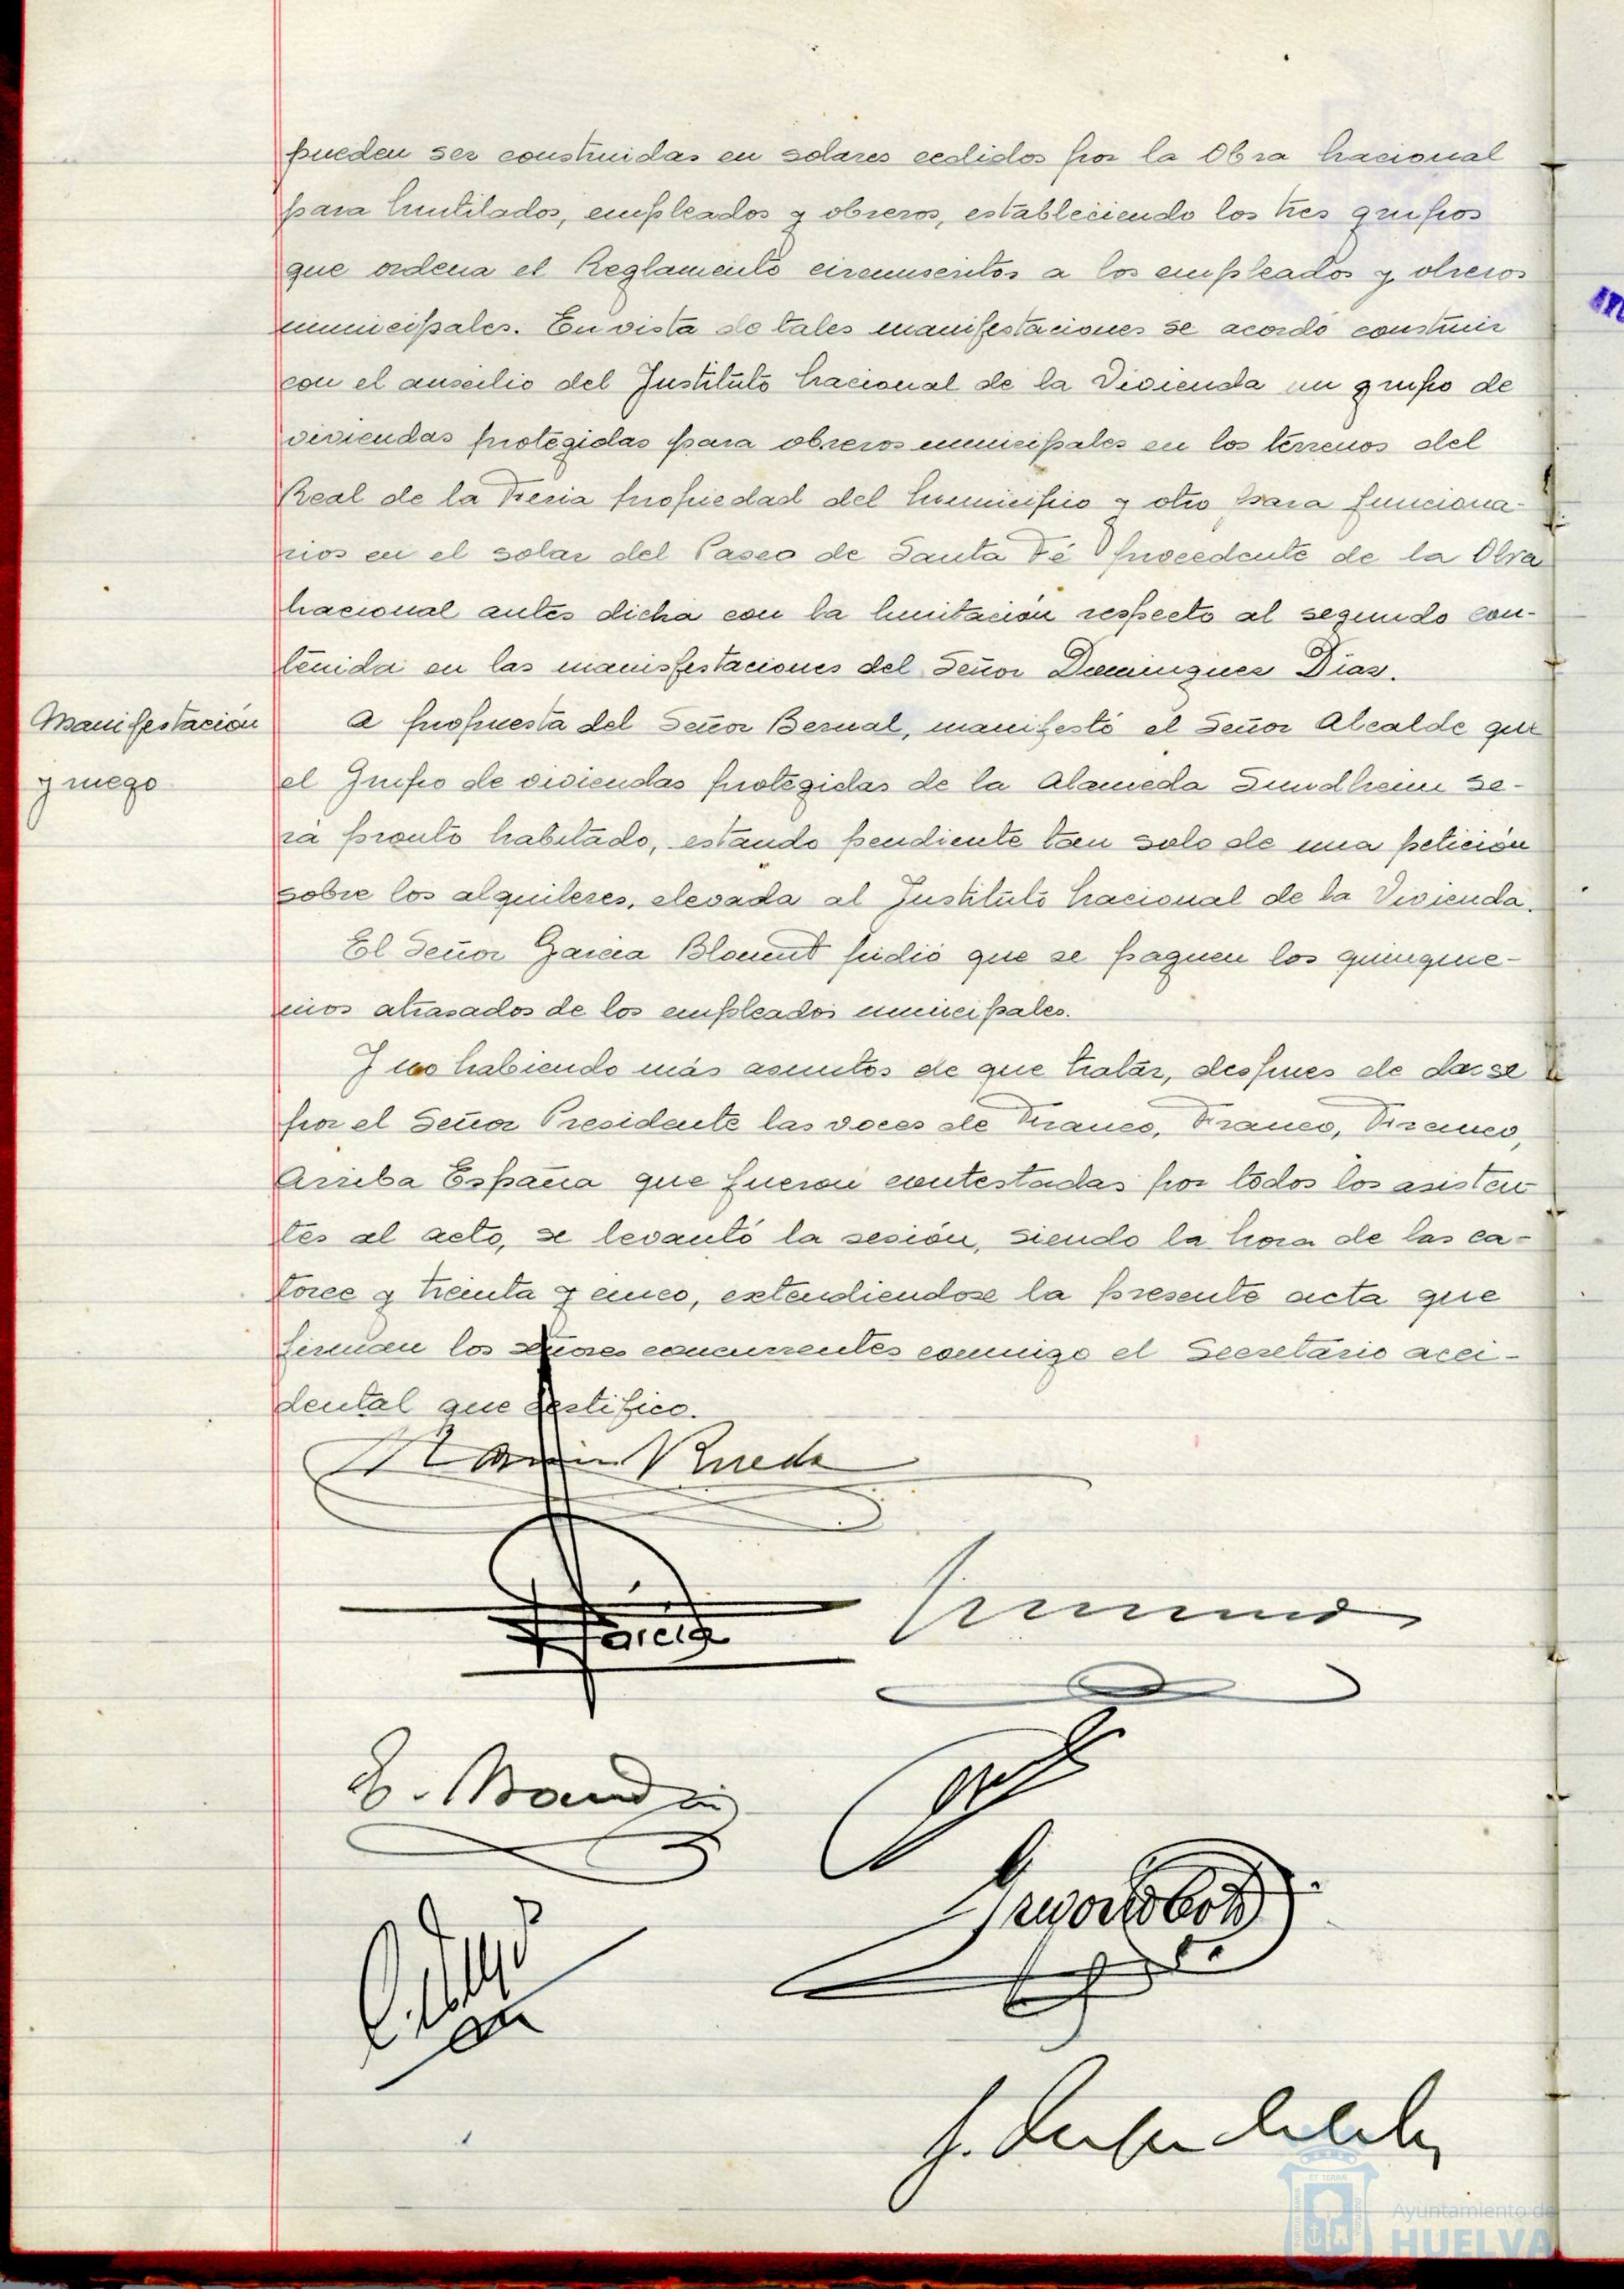 pueden ser construidas en solares cedidos por la Obra Nacional
para Mutilados, empleados y obreros, estableciendo los tres grupos
que ordena el Reglamento circunscritos a los empleados y obreros
municipales. En vista de tales manifestaciones se acordó construir
con el auxilio del Instituto Nacional de la Vivienda un grupo de
viviendas protegidas para obreros municipales en los terrenos del
Real de la Feria propiedad del Municipio y otro para funciona-
rios en el solar del Paseo de Santa Fé procedente de la Obra
Nacional antes dicha con la limitación respecto al segundo con-
tenida en las manisfestaciones del Señor Dominguez Díaz.
Manifestación
y ruego
A propuesta del Señor Bernal, manifestó el Señor Alcalde que
el Grupo de viviendas protegidas de la Alameda Sundheim se-
rá pronto habitado, estando pendiente tan solo de una petición
sobre los alquileres, elevada al Instituto Nacional de la Vivienda.
El Señor Garcia pidió que se paguen los quinque-
nios atrasados de los empleados municipales.
Y no habiendo más asuntos de que tratar, despues de darse
por el Señor Presidente las voces de Franco, Franco, Franco,
Arriba España que fueron contestadas por todos los asisten
tes al acto, se levantó la sesión, siendo la hora de las ca-
torce y treinta y cinco, extendiendose la presente acta que
firman los señores concurrentes conmigo el Secretario acci-
dental que certifico.
Rueda
García
Ayuntamiento de
HUELVA